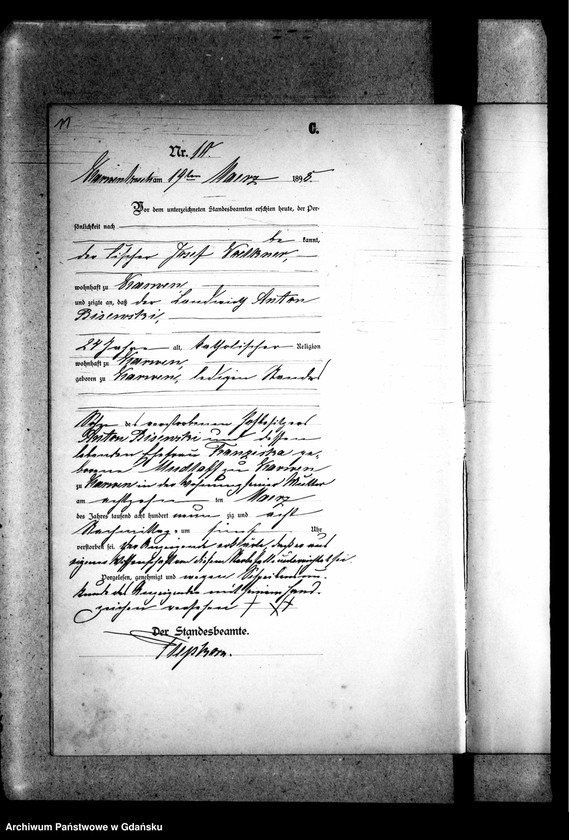 11
C.
Nr. 10.
am 19ten Maerz 1895.
Vor dem unterzeichneten Standesbeamten erschien heute, der Per-
sönlichkeit nach
be kannt,
der Fischer Josef
wohnhaft zu Karwen,
und zeigte an, daß der Landwirth Anton
Bisewski,
24 Jahre alt, katholischer Religion
wohnhaft zu Karwen,
geboren zu Karwen, ledigen Standes
Sohn des verstorbenen Hofbesitzers
Anton Bisewski und dessen
lebenden Ehefrau Franziska ge-
borene zu Karwen
zu Karwen in der Wohnung seiner Mutter
am achtzehn ten Maerz
des Jahres tausend acht hundert neun zig und
Nachmittags um fünf Uhr
verstorben sei. Der Anzeigende erklärte, daß er aus
eigener Wissenschaft von diesem Sterbefalle unterrichtet sei.
Vorgelesen, genehmigt und wegen Schreibensun-
kunde des Anzeigenden mit seinem Hand-
zeichen versehen + X X
Der Standesbeamte.
Archiwum Państwowe w Gdańsku